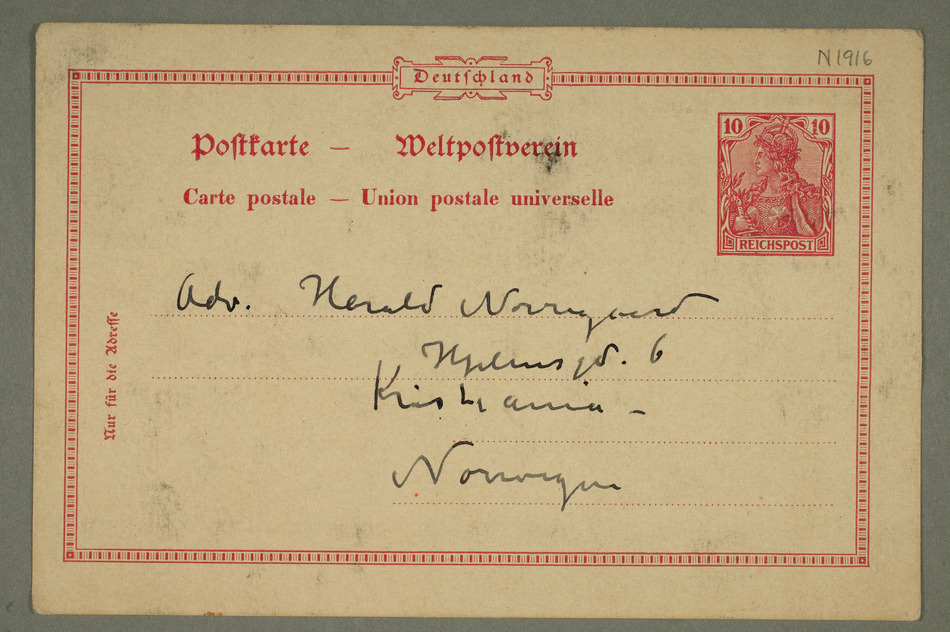 N1916
Deutschland
Postkarte — Weltpostverein
Carte postale — Union postale universelle
10 10
REICHSPOST
Nur für die Adresse
Adv. Harald Nörregaard
Hjelmsgd. 6
Kristiania –
Norwegen